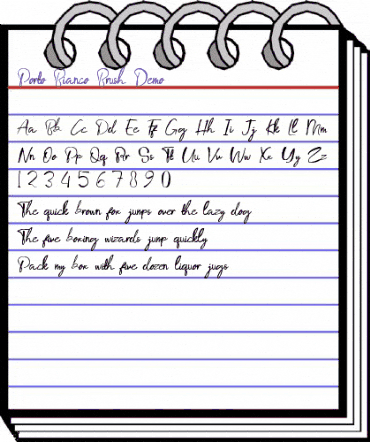 Porto Bianco Brush Demo
Aa Bb Cc Dd Ee Ff Gg Hh Ii Jj Kk Ll Mm
Nn Oo Pp Qq Rr Ss Tt Uu Vv Ww Xx Yy Zz
1 2 3 4 5 6 7 8 9 0
The quick brown fox jumps over the lazy dog
The five boxing wizards jump quickly
Pack my box with five dozen liquor jugs